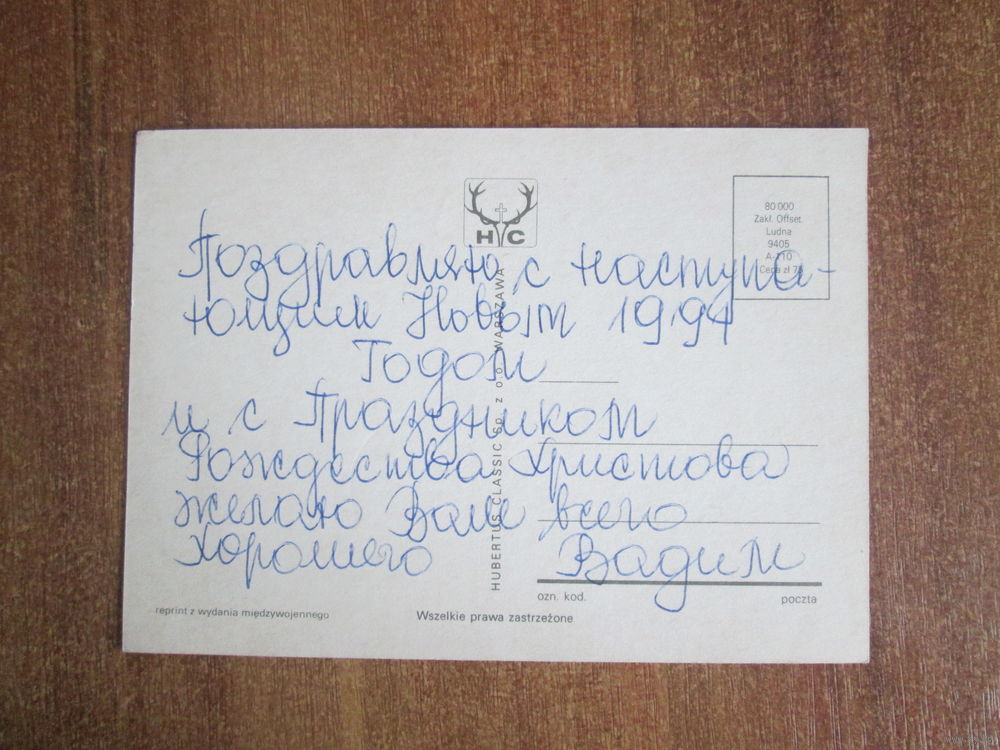 80 000
Zakł. Offset.
Ludna
9405
A-110
Cena zł 
H C
Поздравляю с наступа-
ющим Новым 1994
Годом
и с Праздником
Рождества Христова
желаю Вам всего
хорошего Вадим
HUBERTUS CLASSIC Sp. z o.o. WARSZAWA
ozn. kod. poczta
reprint z wydania międzywojennego
Wszelkie prawa zastrzeżone